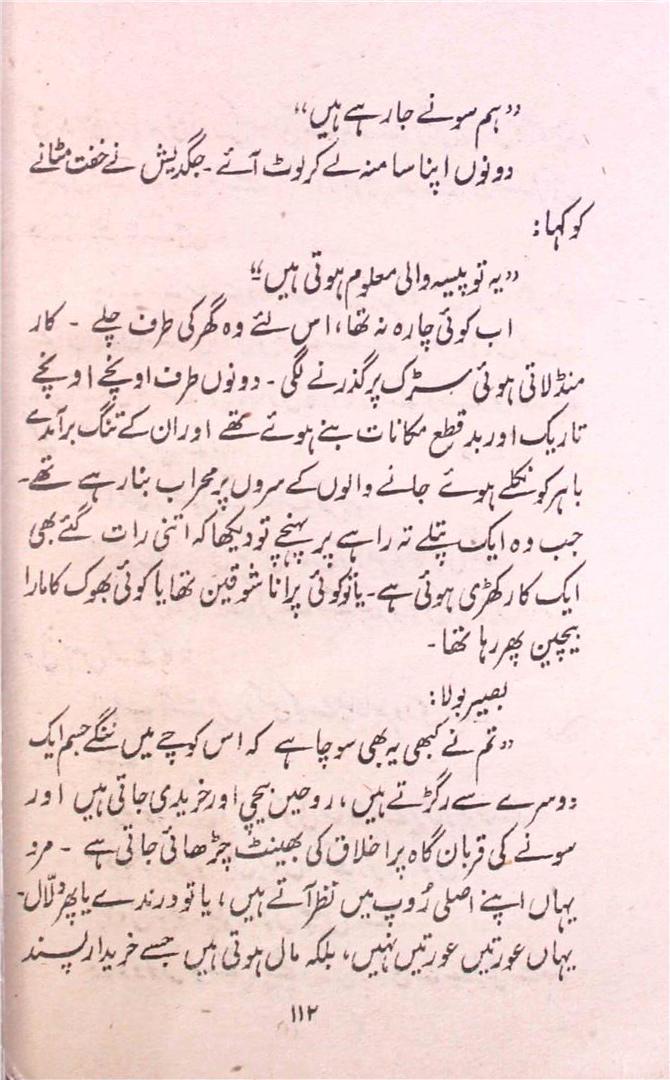 ”ہم سونے جا رہے ہیں“
دونوں اپنا سا منہ لے کر لوٹ آئے ۔ جگدیش نے خفت مٹانے
کو کہا:
”یہ تو پیسہ والی معلوم ہوتی ہیں“
اب کوئی چارہ نہ تھا، اس لئے وہ گھر کی طرف چلے ۔ کار
منڈلاتی ہوئی سڑک پر گذرنے لگی ۔ دونوں طرف اونچے اونچے
تاریک اور بدقطع مکانات بنے ہوئے تھے اور ان کے تنگ برآمدے
باہر کو نکلے ہوئے جانے والوں کے سروں پر محراب بنا رہے تھے ۔
جب وہ ایک پتلے تہ راہے پر پہنچے تو دیکھا کہ اتنی رات گئے بھی
ایک کار کھڑی ہوئی ہے ۔ یا تو کوئی پرانا شوقین تھا یا کوئی بھوک کا مارا
بیچین پھر رہا تھا ۔
بصیر بولا:
”تم نے کبھی یہ بھی سوچا ہے کہ اس کوچے میں ننگے جسم ایک
دوسرے سے رگڑتے ہیں، روحیں بیچی اور خریدی جاتی ہیں اور
سونے کی قربان گاہ پر اخلاق کی بھینٹ چڑھائی جاتی ہے ۔ مرد
یہاں اپنے اصلی رُوپ میں نظر آتے ہیں، یا تو درندے یا پھر دلّال ۔
یہاں عورتیں عورتیں نہیں، بلکہ مال ہوتی ہیں جسے خریدار پسند
۱۱۲